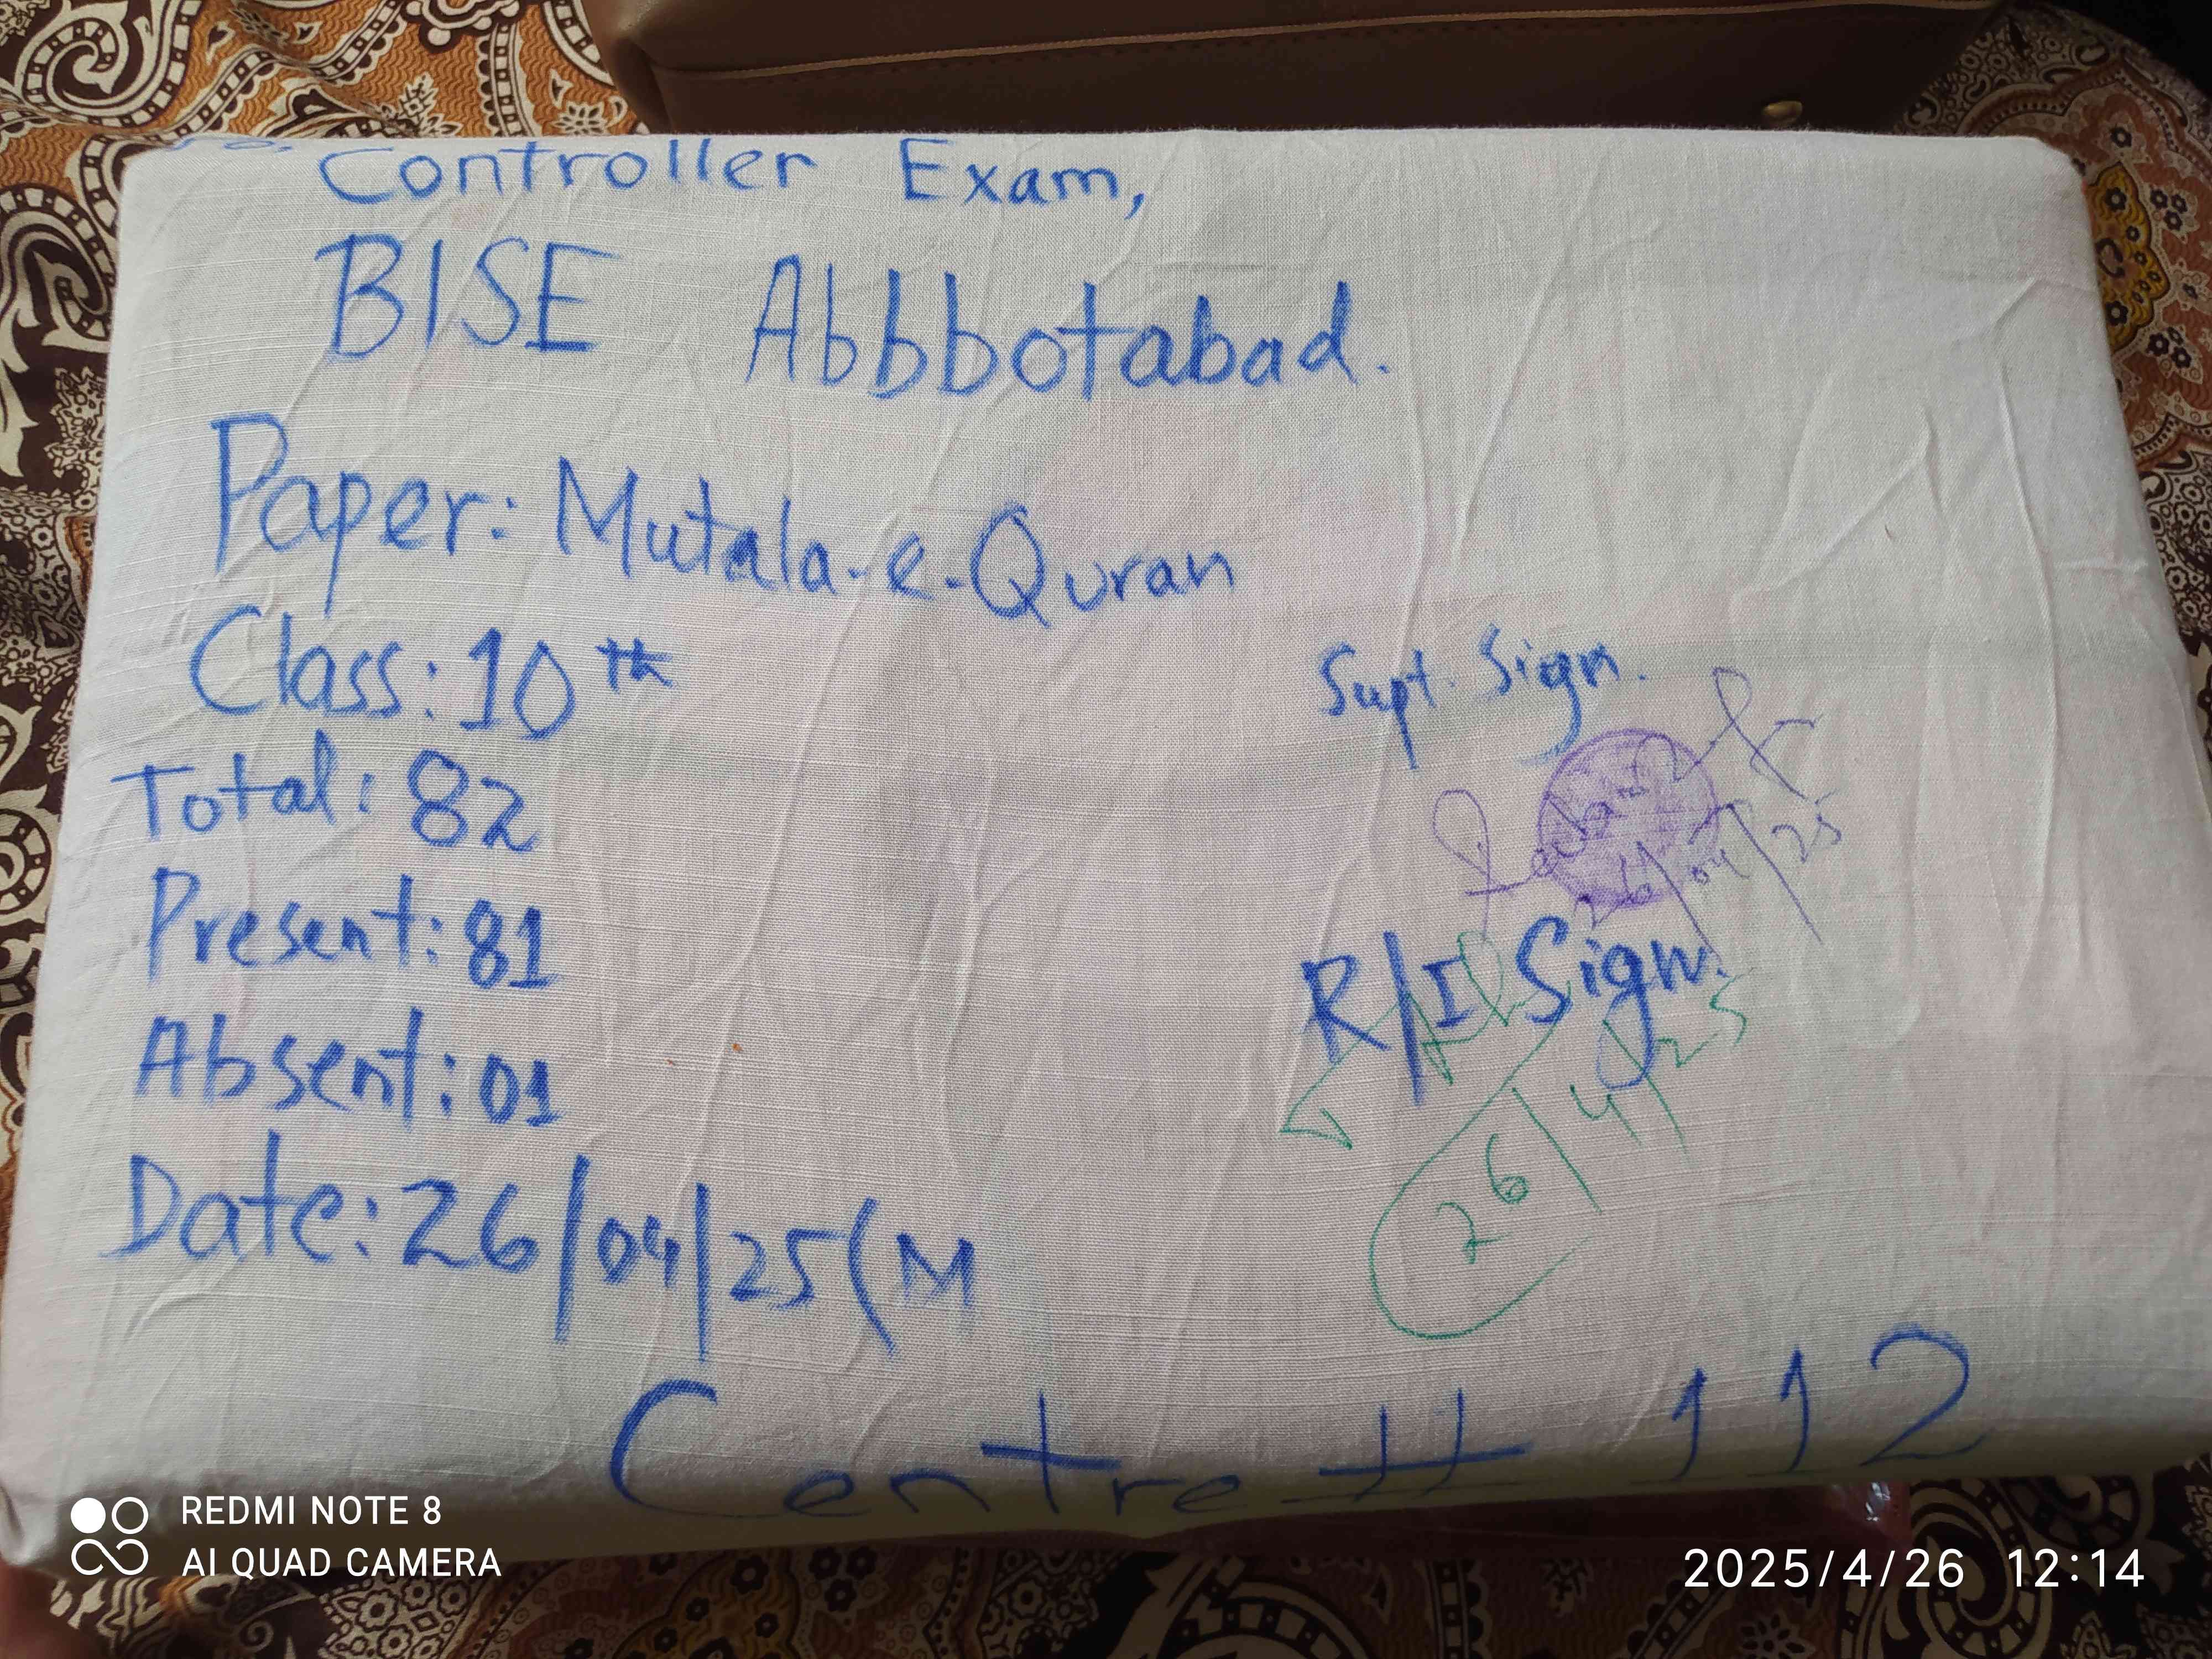 To,
Controller Exam,
BISE Abbbotabad.
Paper: Mutala-e-Quran
Class: 10th
Total: 82
Present: 81
Absent: 01
Date: 26/04/25 (M
Supt. Sign.
26/04/25
R/I Sign.
26/4/25
Centre # 112
REDMI NOTE 8
AI QUAD CAMERA
2025/4/26 12:14